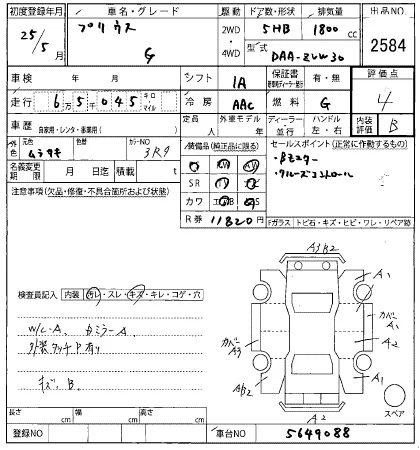 初度登録年月 車名・グレード 駆動 ドア数・形状 排気量 出品NO
25年 プリウス 2WD 5HB 1800cc 2584
5月 G 4WD 型式 DAA-ZVW30
車検 年 月 シフト IA 保証書 有・無 評価点
走行 6万5千045キロ・マイル 冷房 AAC 燃料 G 4
車歴 自家用・レンタ・事業用( ) 定員 人 外車モデル 年 ディーラー・並行 ハンドル 左・右 内装評価 B
外色 元色 ムラサキ 色替 カラーNO 3R9
装備品(純正品に限る) セールスポイント(正常に作動するもの)
名義変更期限 月 日迄 積載 t
SR
カワ
R券 11820円
・Bモニター
・クルーズコントロール
注意事項(欠品・修復・不具合箇所および状態)
Fガラス トビ石・キズ・ヒビ・ワレ・リペア跡
検査員記入 内装 汚レ・スレ・キズ・キレ・コゲ・穴
W/C-A.
外装タッチP有り
キズ. B.
A3B2
A1
カバー A3
カバー
A2
A1
A2
スペア
長さ cm 幅 cm 高さ cm
登録NO 車台NO 5649088